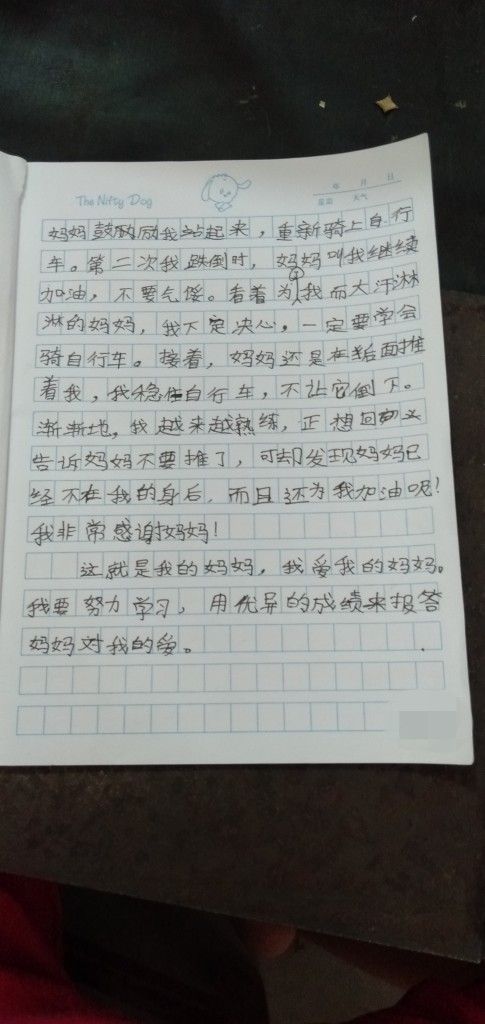 The Nifty Dog
年 月 日
星期 天气
妈妈鼓励我站起来，重新骑上自行
车。第二次我跌倒时，妈妈叫我继续
加油，不要气馁。看着为我而大汗淋
淋的妈妈，我下定决心，一定要学会
骑自行车。接着，妈妈还是在后面推
着我，我稳住自行车，不让它倒下。
渐渐地，我越来越熟练，正想回
告诉妈妈不要推了，可却发现妈妈已
经不在我的身后，而且还为我加油呢！
我非常感谢妈妈！
这就是我的妈妈，我爱我的妈妈。
我要努力学习，用优异的成绩来报答
妈妈对我的爱。